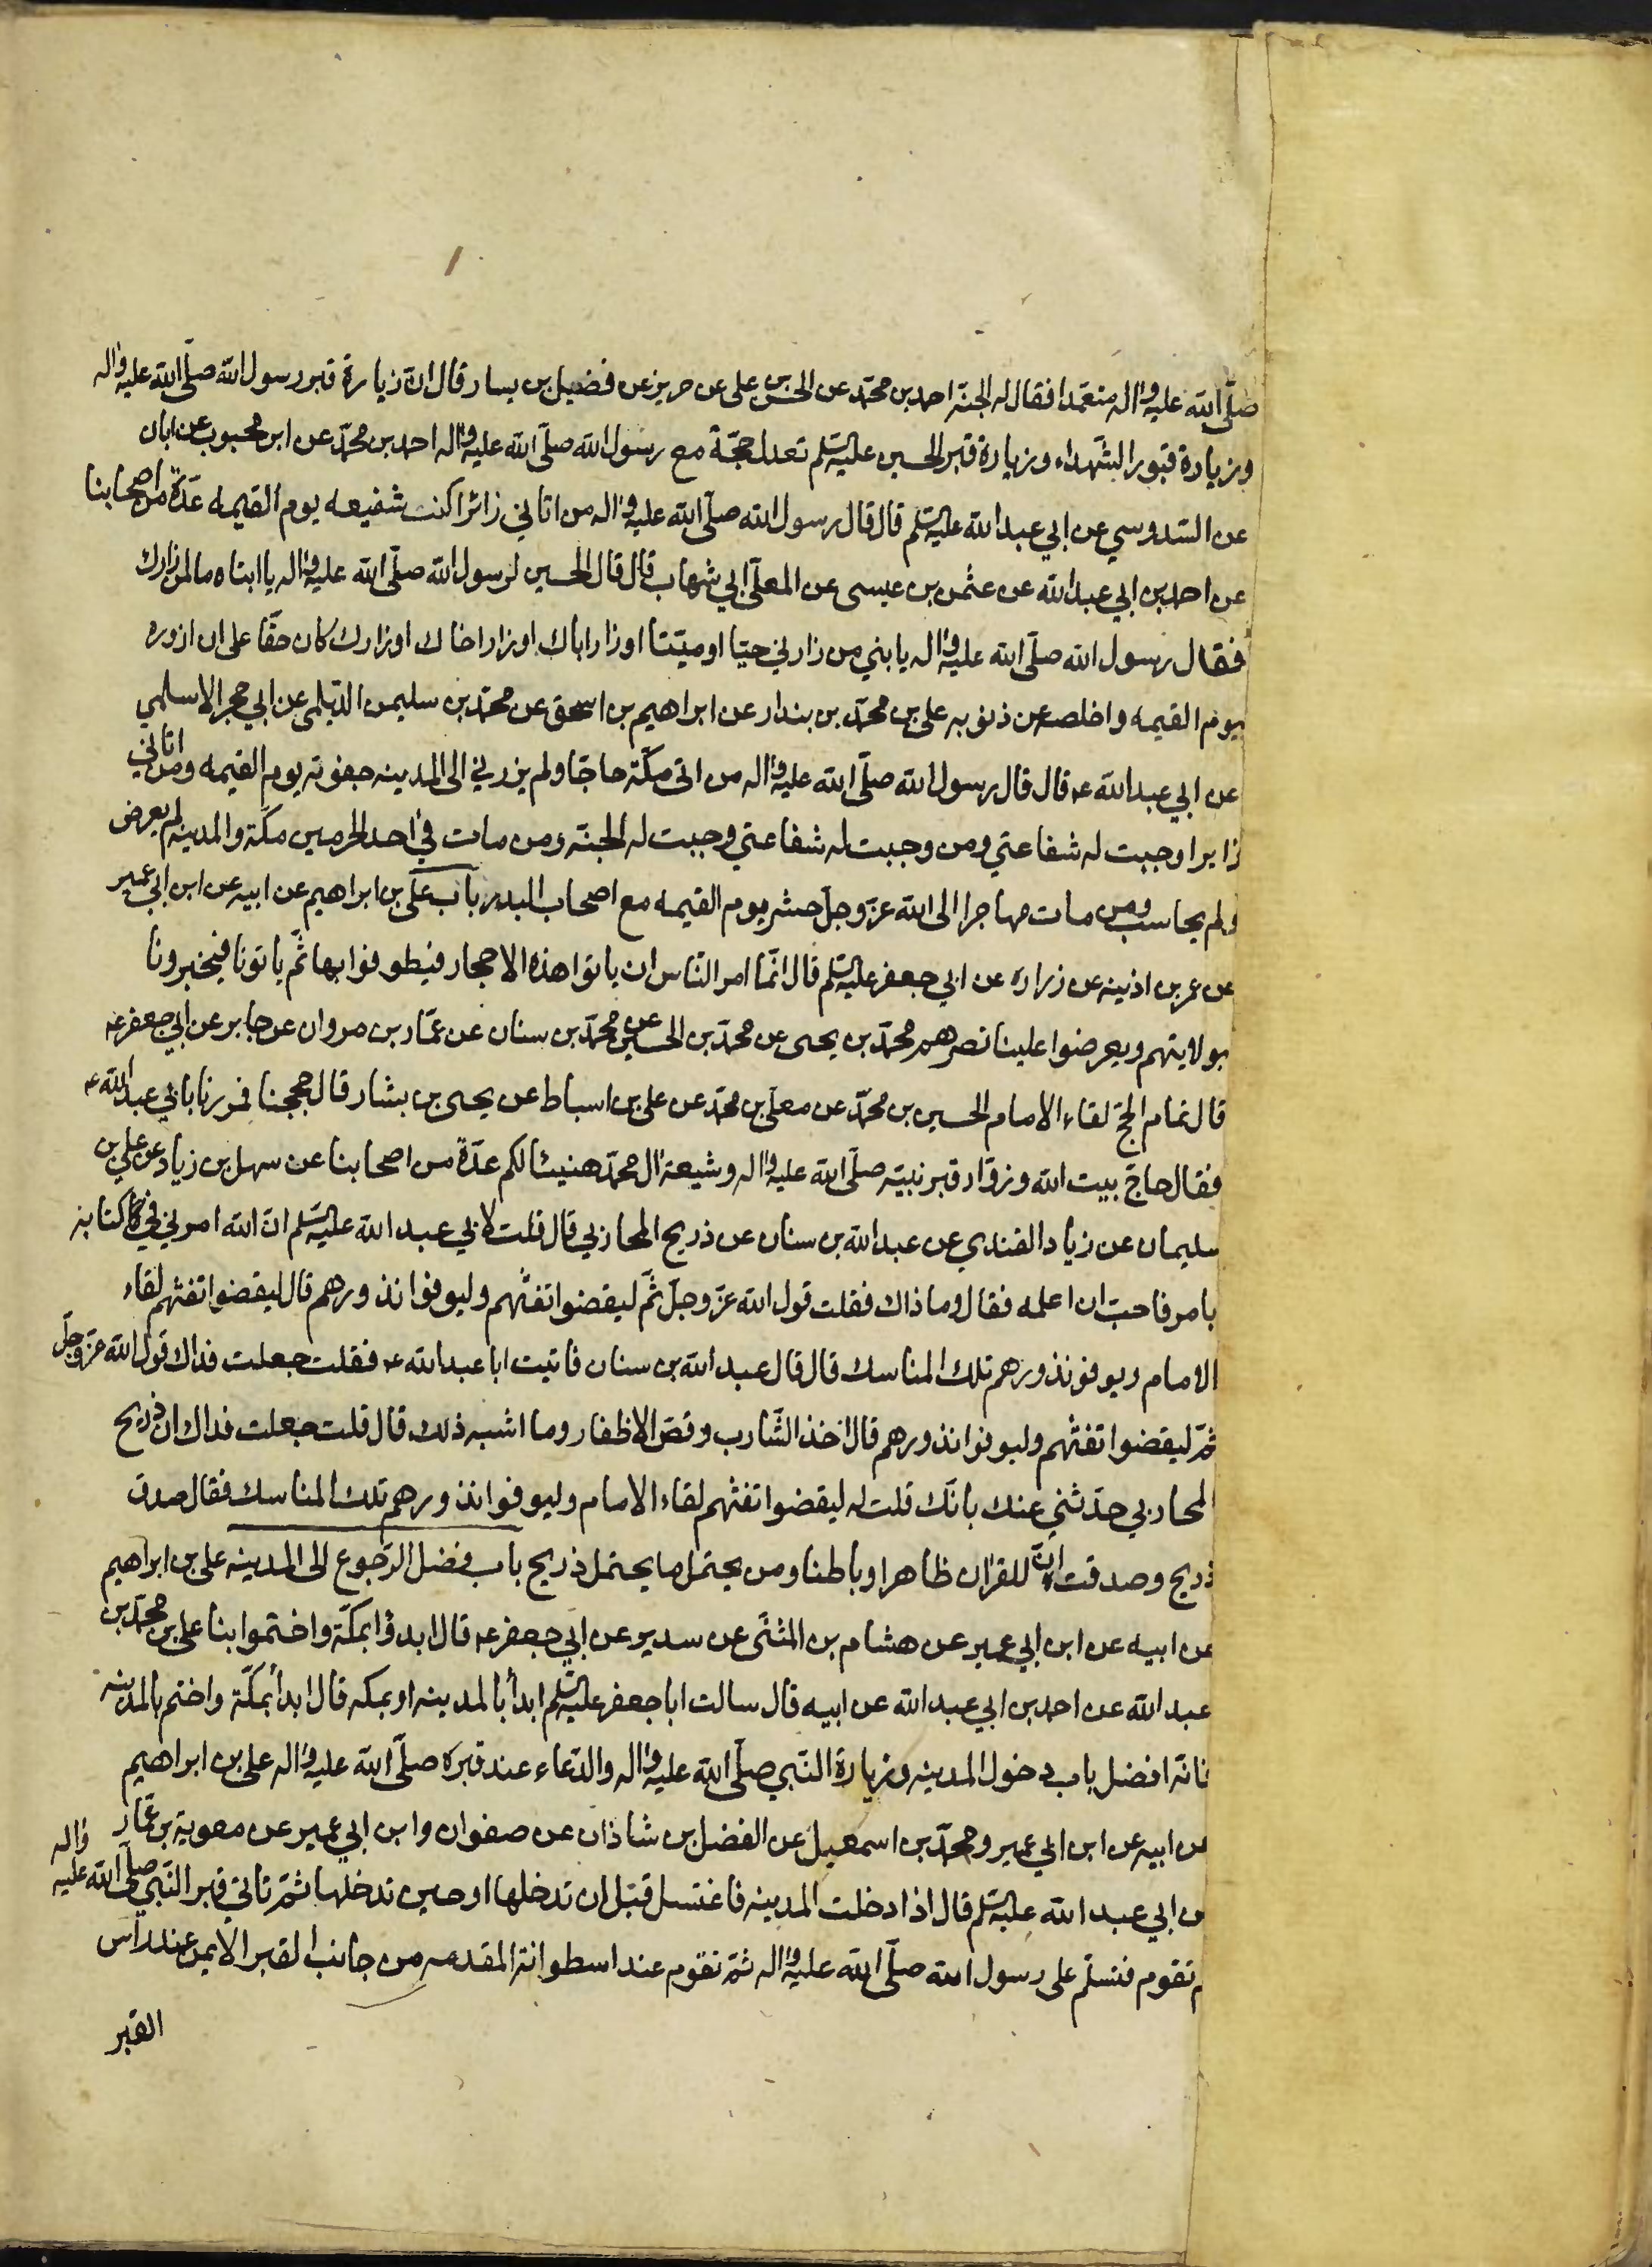 صلّى الله عليه واله متعمّدا فقال له الجنة احمد بن محمّد عن الحسن بن على عن حريز عن فضيل بن يسار قال ان زيارة قبر رسول الله صلّى الله عليه واله
وزيارة قبور الشهداء وزيارة قبر الحسين عليه السّلم تعدل حجّة مع رسول الله صلّى الله عليه واله احمد بن محمّد عن ابن محبوب عن ابان
عن السّدوسي عن ابي عبد الله عليه السّلم قال قال رسول الله صلّى الله عليه واله من اتاني زائرا كنت شفيعه يوم القيمه عدّة من اصحابنا
عن احمد بن ابي عبد الله عن عثمن بن عيسى عن المعلّى ابي شهاب قال قال الحسين لرسول الله صلّى الله عليه واله يا ابتاه ما لمن زارك
فقال رسول الله صلّى الله عليه واله يا بني من زارني حيّا او ميّتا او زار اباك او زار اخاك او زارك كان حقّا على ان ازوره
يوم القيمه واخلصه من ذنوبه على بن محمّد بن بندار عن ابراهيم بن اسحق عن محمّد بن سليمن الديلمى عن ابي حجر الاسلمي
عن ابي عبد الله ع قال قال رسول الله صلّى الله عليه واله من اتى مكّة حاجّا ولم يزرني الى المدينه جفوته يوم القيمه ومن اتاني
زايرا وجبت له شفاعتي ومن وجبت له شفاعتي وجبت له الجنّه ومن مات في احد الحرمين مكّة والمدينه لم يعرض
ولم يحاسب ومن مات مهاجرا الى الله عزّ وجلّ حشر يوم القيمه مع اصحاب البدر باب على بن ابراهيم عن ابيه عن ابن ابي عمير
عن عمر بن اذينه عن زراره عن ابي جعفر عليه السّلم قال انّما امر النّاس ان ياتوا هذه الاحجار فيطوفوا بها ثمّ ياتونا فيخبرونا
بولايتهم ويعرضوا علينا نصرهم محمّد بن يحيى عن محمّد بن الحسين عن محمّد بن سنان عن عمّار بن مروان عن جابر عن ابي جعفر ع
قال تمام الحجّ لقاء الامام الحسين بن محمّد عن معلّى بن محمّد عن على بن اسباط عن يحيى بن بشار قال حججنا فمررنا بابي عبد الله ع
فقال حاجّ بيت الله وزوّار قبر نبيّه صلّى الله عليه واله وشيعة ال محمّد هنيئا لكم عدّة من اصحابنا عن سهل بن زياد عن علي بن
سليمان عن زياد القندي عن عبد الله بن سنان عن ذريح المحاربي قال قلت لابي عبد الله عليه السّلم انّ الله امرني في كتابه
بامر فاحبّ ان اعلمه فقال وما ذاك فقلت قول الله عزّ وجلّ ثمّ ليقضوا تفثهم وليوفوا نذورهم قال ليقضوا تفثهم لقاء
الامام ويوفو نذورهم تلك المناسك قال قال عبد الله بن سنان فاتيت ابا عبد الله ع فقلت جعلت فداك قول الله عزّ وجلّ
ثمّ ليقضوا تفثهم وليوفوا نذورهم قال اخذ الشّارب وقصّ الاظفار وما اشبه ذلك قال قلت جعلت فداك ان ذريح
المحاربي حدّثني عنك بانّك قلت له ليقضوا تفثهم لقاء الامام وليوفوا نذورهم تلك المناسك فقال صدق
ذريح وصدقت انّ للقران ظاهرا وباطنا ومن يحتمل ما يحتمل ذريح باب فضل الرّجوع الى المدينه على بن ابراهيم
عن ابيه عن ابن ابي عمير عن هشام بن المثنّى عن سدير عن ابي جعفر ع قال ابدؤا بمكّة واختموا بنا على بن محمّد بن
عبد الله عن احمد بن ابي عبد الله عن ابيه قال سالت ابا جعفر عليه السّلم ابدأ بالمدينه او بمكه قال ابدأ بمكّة واختم بالمدينه
فانّه افضل باب دخول المدينه وزيارة النّبي صلّى الله عليه واله والدّعاء عند قبره صلّى الله عليه واله على بن ابراهيم
عن ابيه عن ابن ابي عمير ومحمّد بن اسمعيل عن الفضل بن شاذان عن صفوان وابن ابي عمير عن معوية بن عمّار
عن ابي عبد الله عليه السّلم قال اذا دخلت المدينه فاغتسل قبل ان تدخلها او حين تدخلها ثمّ تاتي قبر النّبي صلّى الله عليه واله
ثم تقوم فتسلّم على رسول الله صلّى الله عليه واله ثمّ تقوم عند اسطوانة المقدمه من جانب القبر الايمن عند راس
القبر